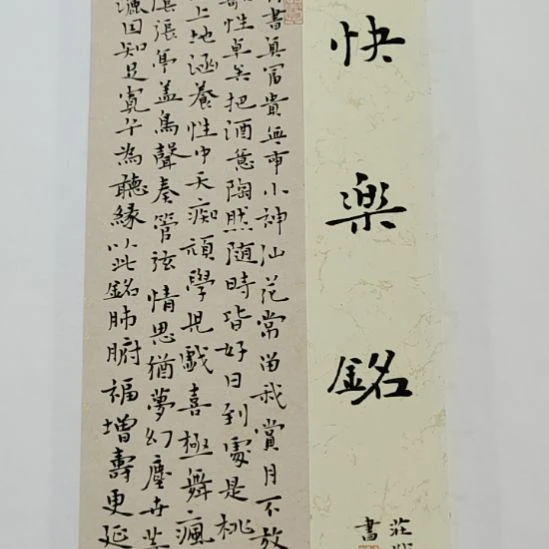 快樂銘
書
書真富貴無事小神仙花常留我賞月不放
性卓矣把酒意陶然隨時皆好日到處是桃
上地涵養性中天痴頑學兒戲喜極舞瘋
張筆蓋鳥聲奏管弦情思猶夢幻塵世
源因知足寬乎為聽緣以此銘肺腑福增壽更延